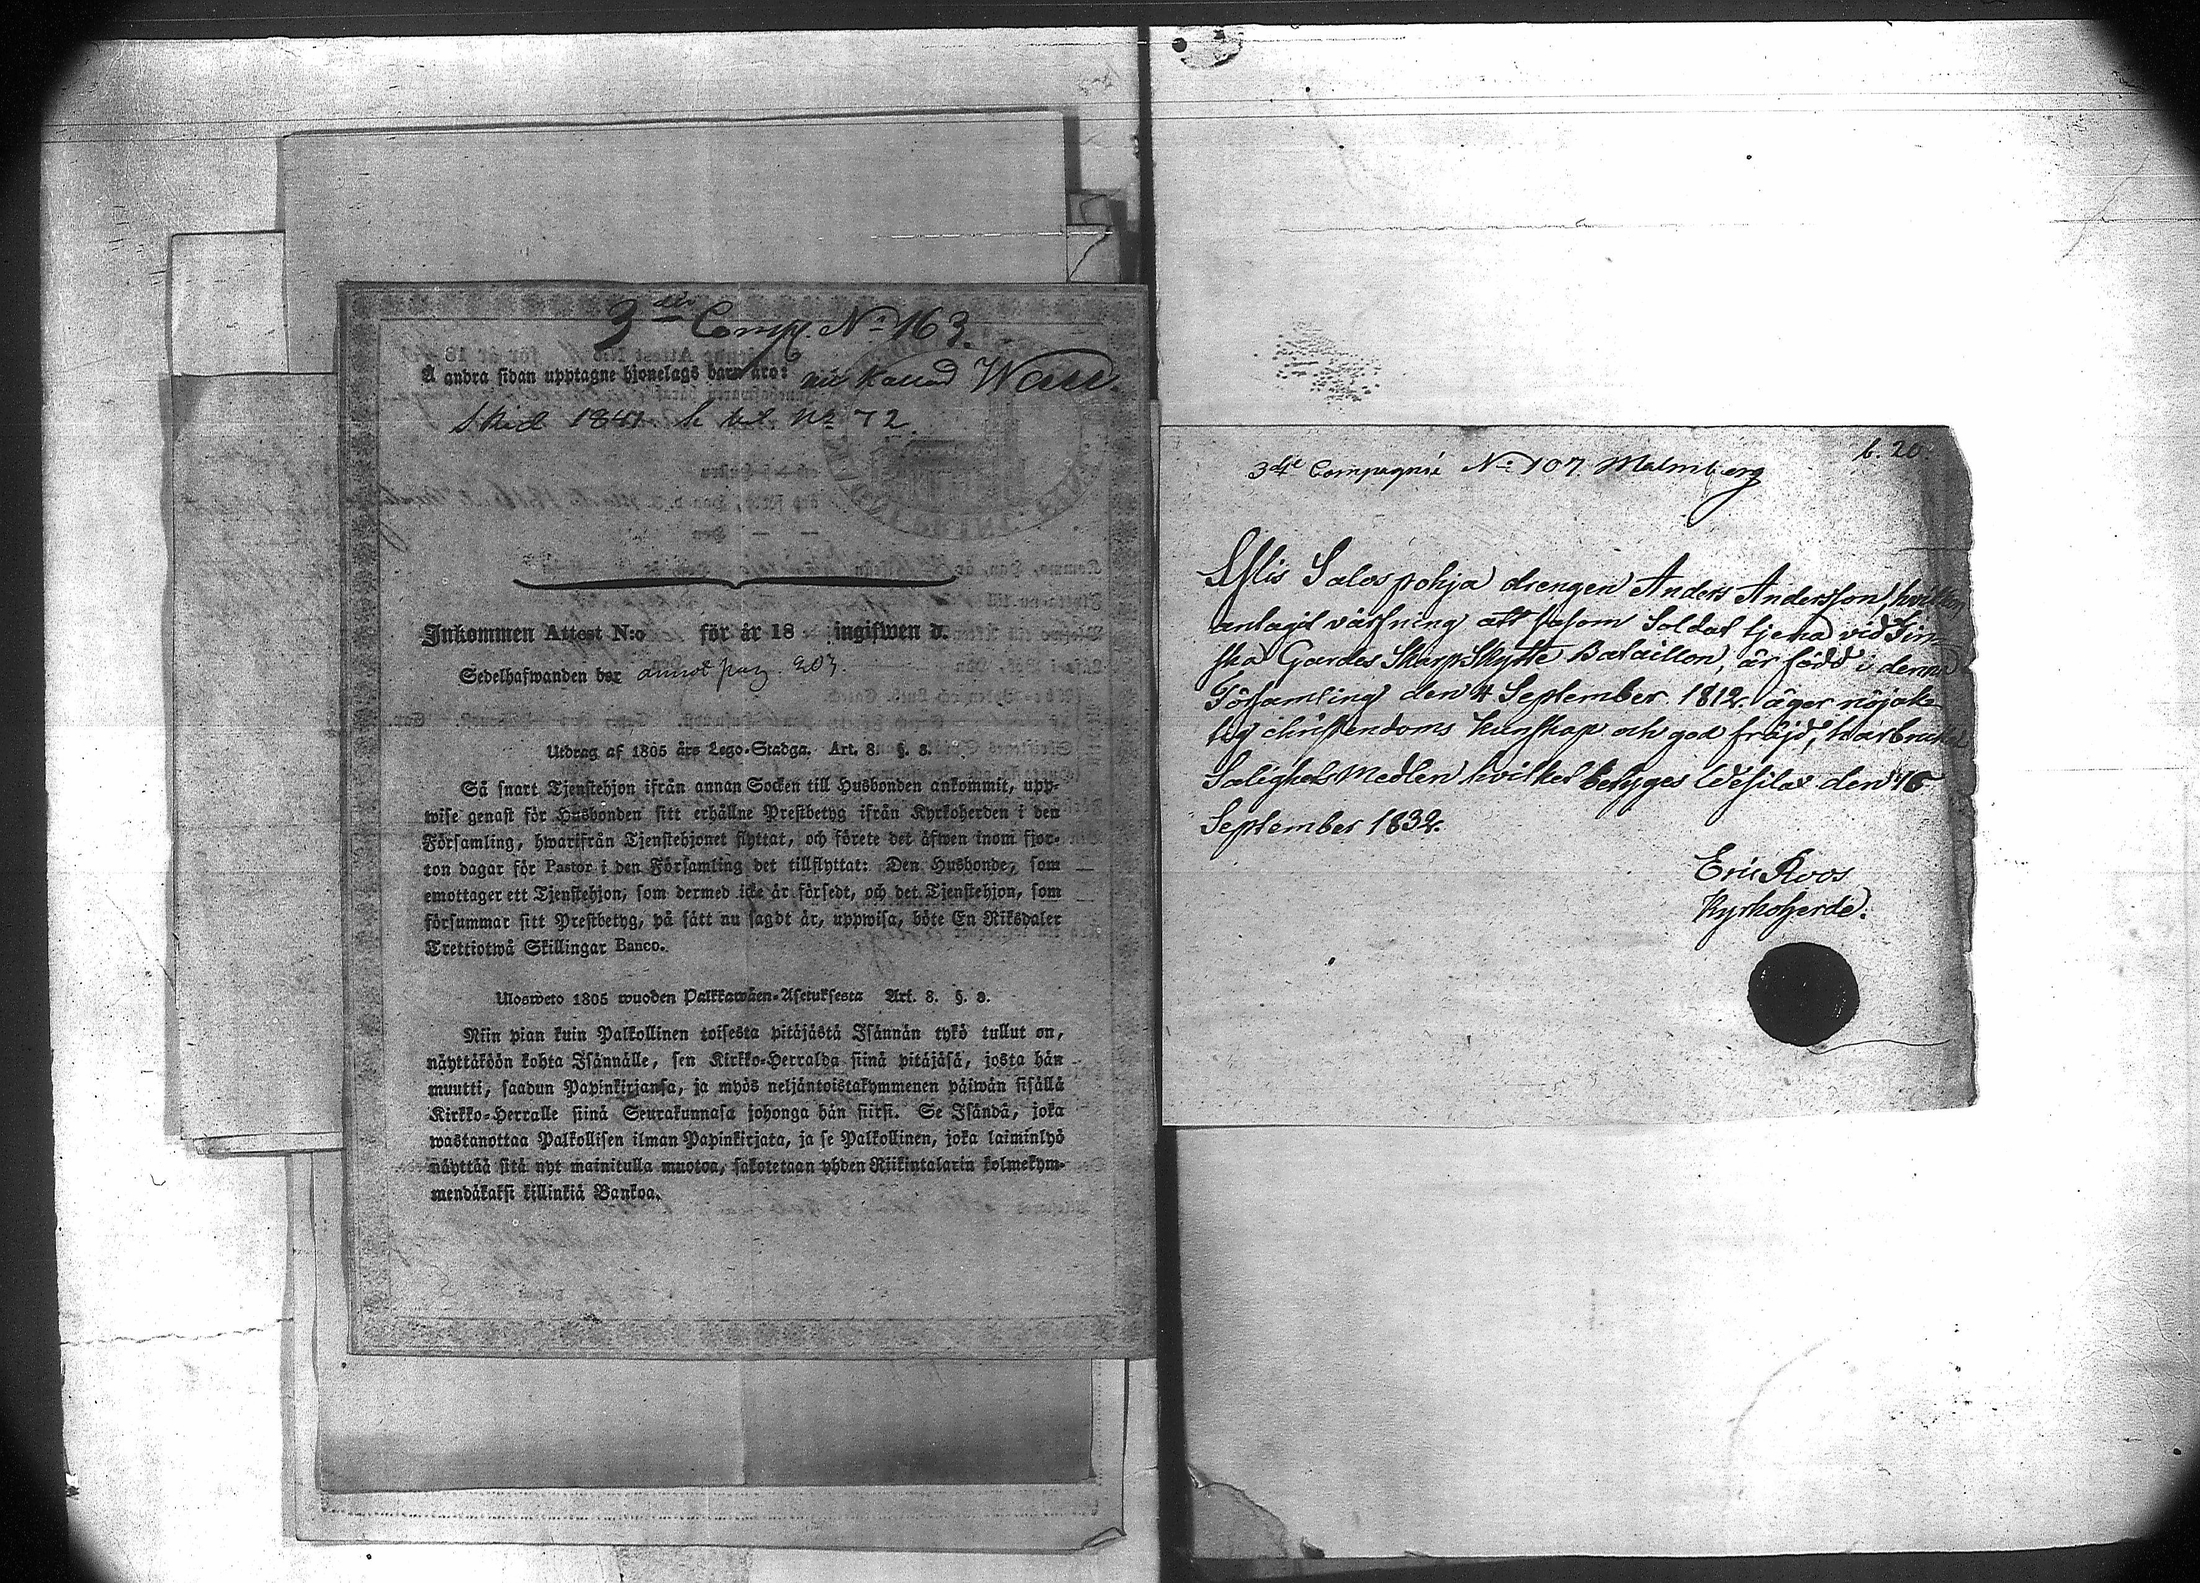 3die Comp. No 163.
Å andra sidan upptagne hjonelags barn äro: nu kallad Wass.
Sked 1841 No 72
Inkommen Attest N:o för år 18 ingifwen d.
Sedelhafwanden bör annot pag. 203.
Utdrag af 1805 års Lego-Stadga. Art. 3. §. 8.
Så snart Tjenstehjon ifrån annan Socken till Husbonden ankommit, upp-
wise genast för Husbonden sitt erhållne Prestbetyg ifrån Kyrkoherden i den
Församling, hwarifrån Tjenstehjonet flyttat, och förete det äfwen inom fjor-
ton dagar för Pastor i den Församling det tillflyttat: Den Husbonde, som
emottager ett Tjenstehjon, som dermed icke är försedt, och det Tjenstehjon, som
försummar sitt Prestbetyg, på sätt nu sagdt är, uppwisa, böte En Riksdaler
Trettiotwå Skillingar Banco.
Ulosweto 1805 wuoden Palkkawäen-Asetuksesta Art. 3. §. 8.
Niin pian kuin Palkollinen toisesta pitäjästä Isännän tykö tullut on,
näyttäköön kohta Isännälle, sen Kirkko-Herralda siinä pitäjäsä, josta hän
muutti, saadun Papinkirjansa, ja myös neljäntoistakymmenen päiwän sisällä
Kirkko-Herralle siinä Seurakunnasa johonga hän siirsi. Se Isändä, joka
wastanottaa Palkollisen ilman Papinkirjata, ja se Palkollinen, joka laiminlyö
näyttää sitä nyt mainitulla muotoa, sakotetaan yhden Riikintalarin kolmekym-
mendäkaksi killinkiä Bankoa.
b. 20.
3die Compagnie No 107 Malmberg
Aflis Salospohja drengen Anders Andersson, hvilken
antagit värfning att såsom Soldat tjena vid Fin-
ska Gardes SkarpSkytte Bataillon, är född i denna
Församling den 4 September 1812. äger nöjak-
tig christendoms kunskap och god fräjd, har brukat
Salighets Medlen hvilket betyges Wesilax den 16
September 1832.
Eric Roos
Kyrkoherde.